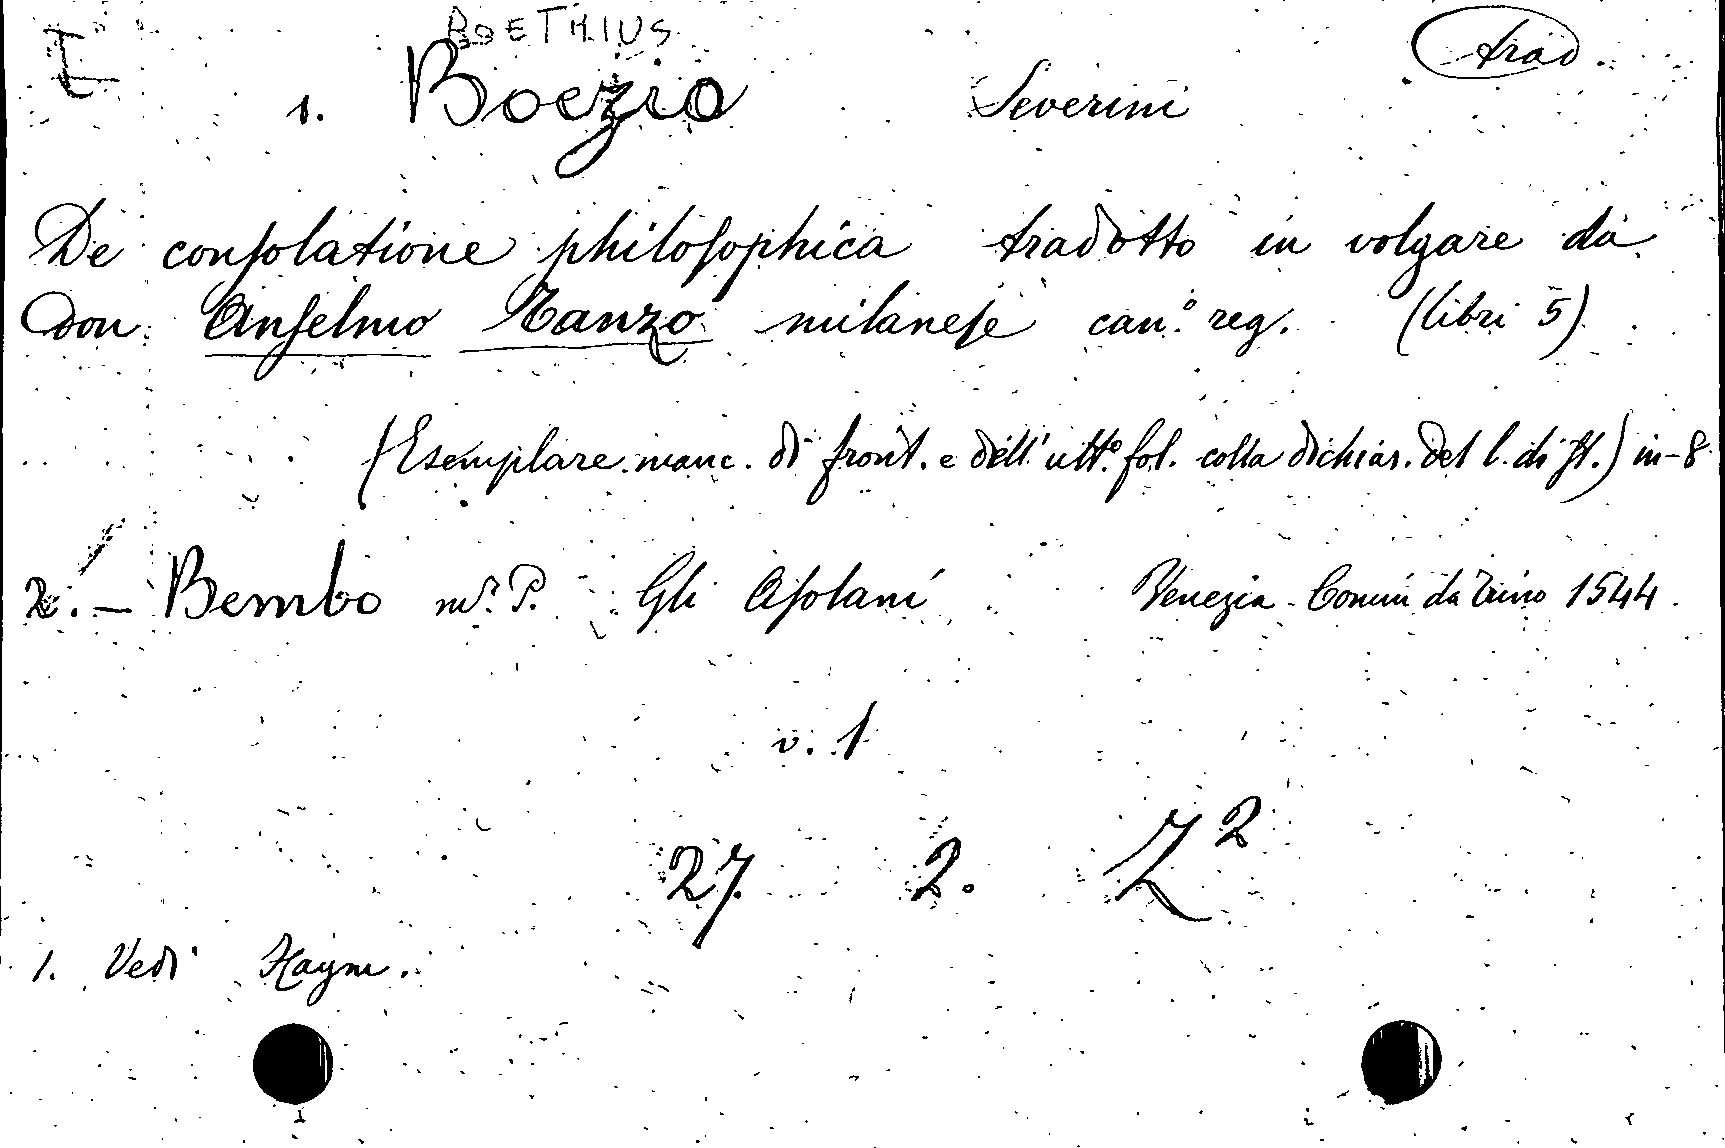 I BOETHIUS trad.
1. Boezio Severini
De consolatione philosophica tradotto in volgare da
Don Anselmo Tanzo milanese can.º reg. (libri 5)
(Esemplare manc. di front. e dell'ult.º fol. colla dichiar. del l. di st.) in-8
2. — Bembo m.r P. Gli Asolani Venezia Comin da Trino 1544.
v. 1
27. 2. Z²
1. Vedi Haym.